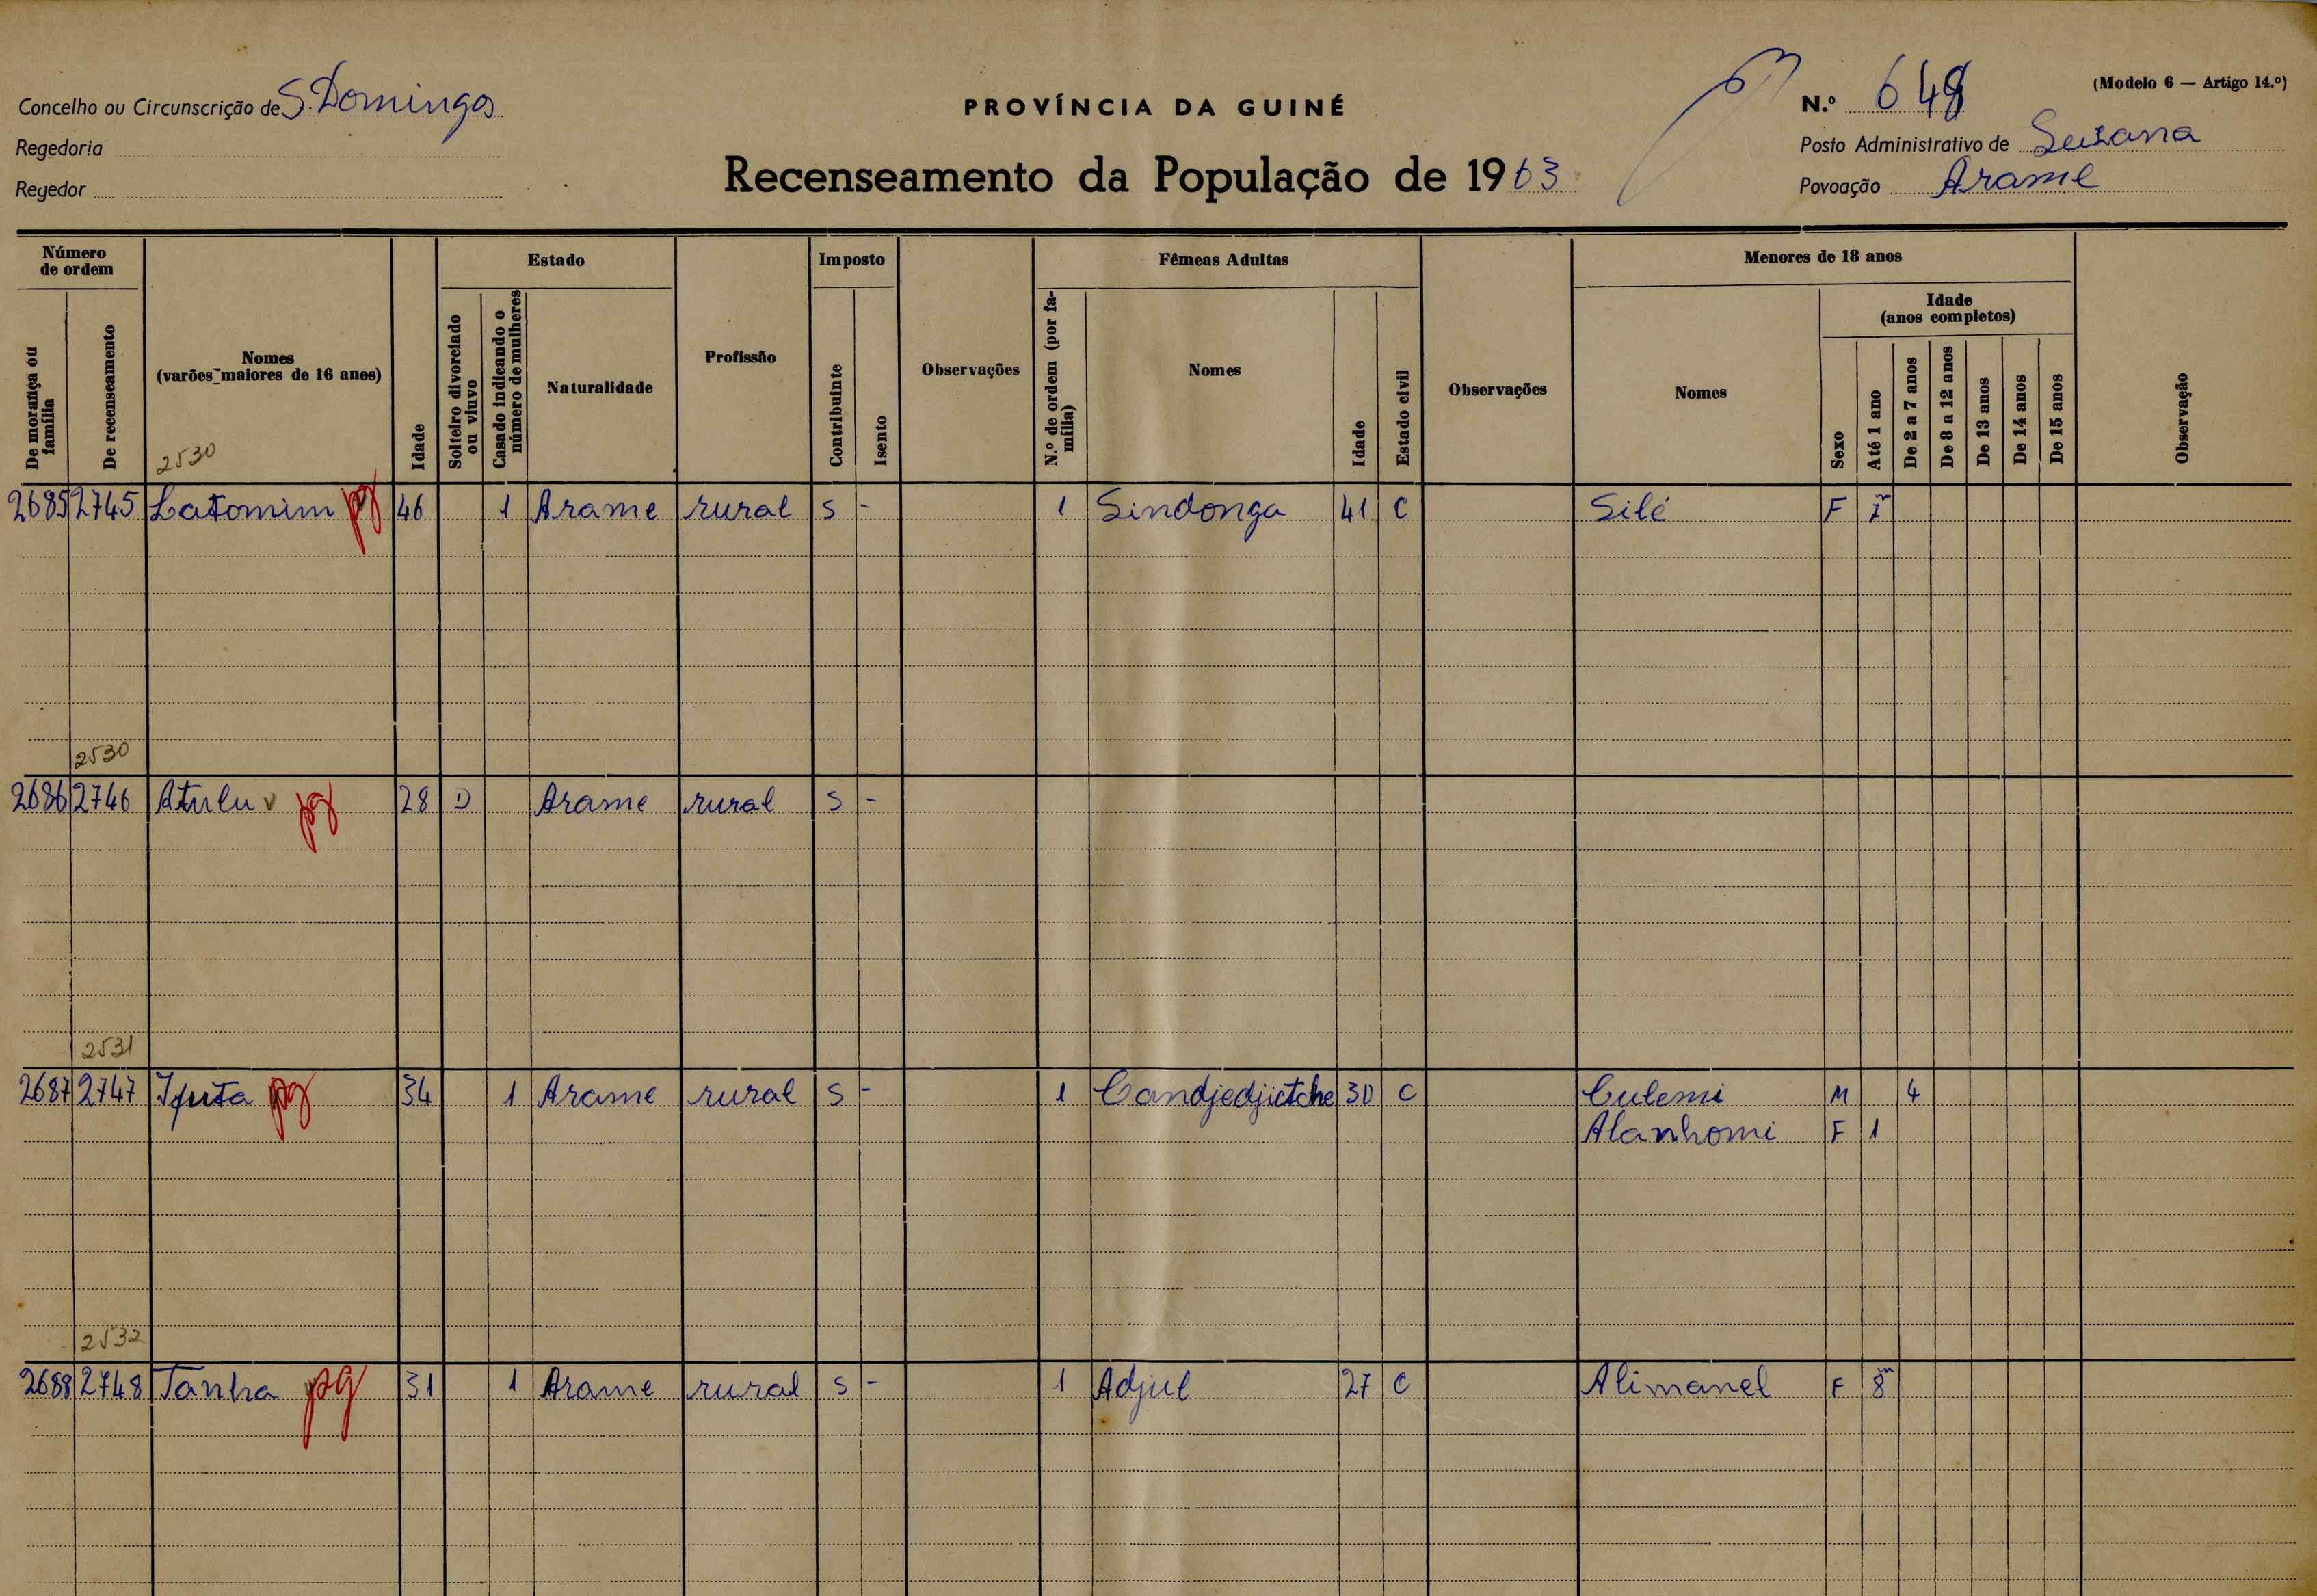 (Modelo 6 — Artigo 14.º)
Concelho ou Circunscrição de S. Domingos
PROVÍNCIA DA GUINÉ
N.º 648
Regedoria
Posto Administrativo de Suzana
Regedor
Recenseamento da População de 1963
Povoação Arame
Número de ordem
Estado
Imposto
Fêmeas Adultas
Menores de 18 anos
De morança ou família
De recenseamento
Nomes
(varões maiores de 16 anos)
Idade
Solteiro divorciado ou viuvo
Casado indicando o número de mulheres
Naturalidade
Profissão
Contribuinte
Isento
Observações
N.º de ordem (por família)
Nomes
Idade
Estado civil
Observações
Nomes
Sexo
Idade
(anos completos)
Até 1 ano
De 2 a 7 anos
De 8 a 12 anos
De 13 anos
De 14 anos
De 15 anos
Observação
2530
2685 2745 Latomim pg 46 1 Arame rural s - 1 Sindonga 41 C Silé F
2530
2686 2746 Atulu v pg 28 D Arame rural s -
2531
2687 2747 pg 34 1 Arame rural s - 1 Candjedjictche 30 C Culemi M 4
Alanhomi F 1
2532
2688 2748 Tanha pg 31 1 Arame rural s - 1 Adjul 27 C Alimanel F 8 m